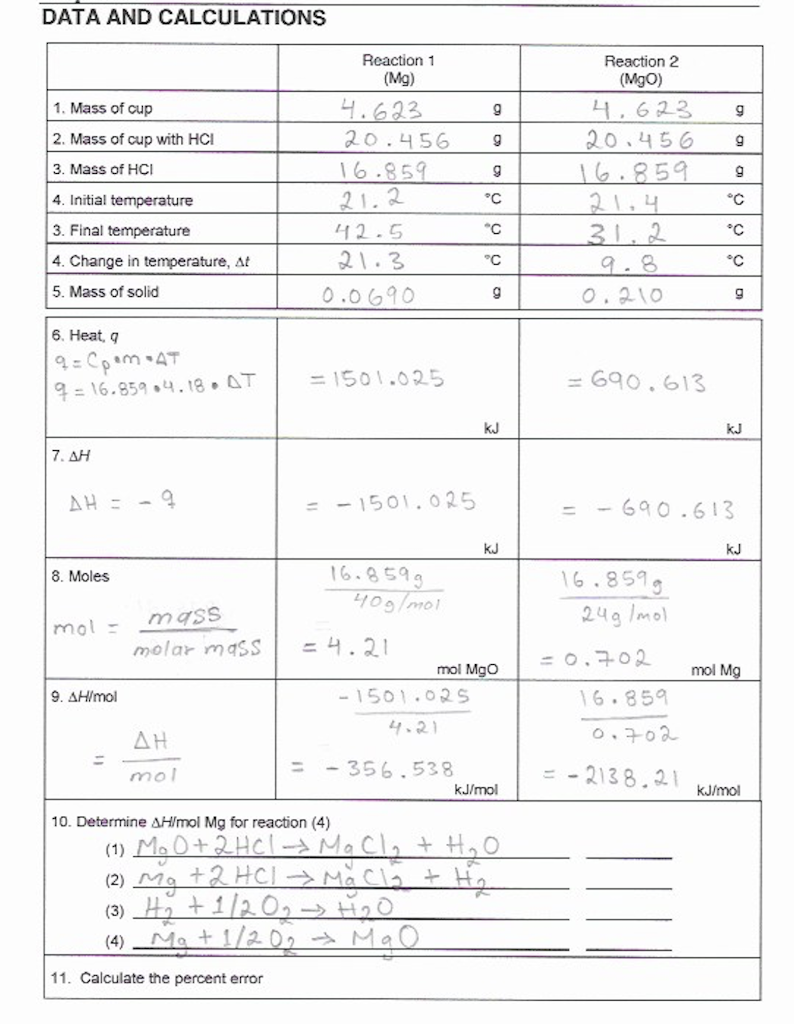 DATA AND CALCULATIONS
Reaction 1 Reaction 2
(Mg) (MgO)
1. Mass of cup 4.623 g 4.623 g
2. Mass of cup with HCl 20.456 g 20.456 g
3. Mass of HCl 16.859 g 16.859 g
4. Initial temperature 21.2 °C 21.4 °C
3. Final temperature 42.5 °C 31.2 °C
4. Change in temperature, Δt 21.3 °C 9.8 °C
5. Mass of solid 0.0690 g 0.210 g
6. Heat, q
q = Cp•m•ΔT
q = 16.859•4.18•ΔT = 1501.025 = 690.613
kJ kJ
7. ΔH
ΔH = -q = -1501.025 = -690.613
kJ kJ
8. Moles 16.859g 16.859g
40g/mol 24g/mol
mol = mass
molar mass = 4.21 = 0.702
mol MgO mol Mg
9. ΔH/mol -1501.025 16.859
4.21 0.702
= ΔH
mol = -356.538 = -2138.21
kJ/mol kJ/mol
10. Determine ΔH/mol Mg for reaction (4)
(1) MgO + 2HCl → MgCl2 + H2O
(2) Mg + 2HCl → MgCl2 + H2
(3) H2 + 1/2O2 → H2O
(4) Mg + 1/2O2 → MgO
11. Calculate the percent error